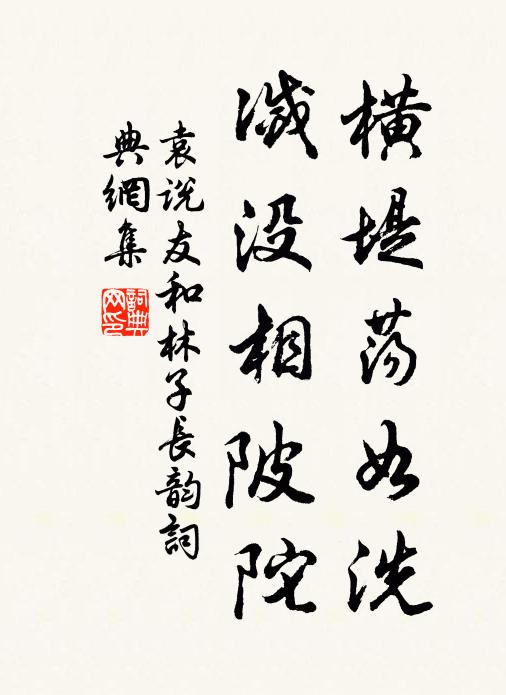 橫堤蕩如洗
滅沒相陂陀
袁說友和林子長韵詞
典網集
詞典網印